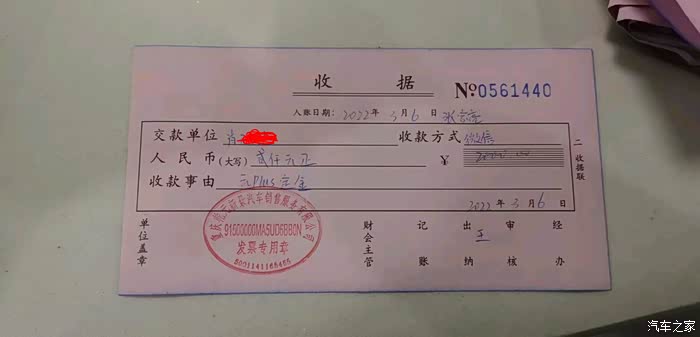 收 据
№0561440
入账日期：2022年3月6日
交款单位 肖
收款方式 微信
人民币(大写) 贰仟元正
¥ 2000.00
收款事由 元plus定金
2022年3月6日
二 收据联
单位盖章
财会主管
记账
出纳 王
审核
经办
汽车销售服务有限公司
发票专用章
汽车之家